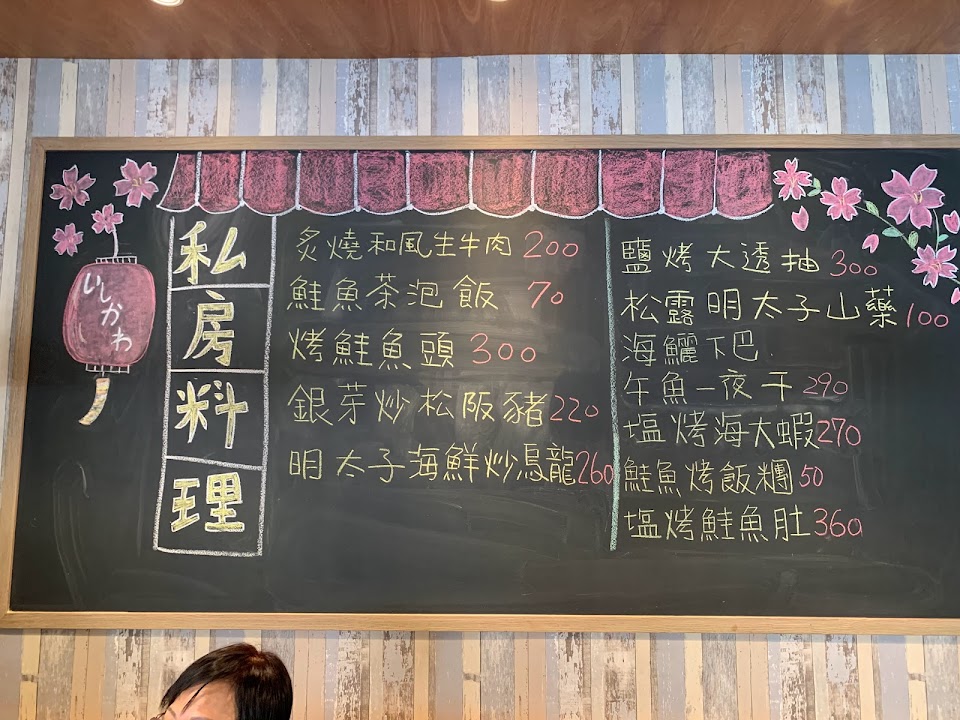 いしかわ
私房料理
炙燒和風生牛肉 200
鮭魚茶泡飯 70
烤鮭魚頭 300
銀芽炒松阪豬 220
明太子海鮮炒烏龍 260
鹽烤大透抽 300
松露明太子山藥 100
海鱺下巴
午魚一夜干 290
塩烤海大蝦 270
鮭魚烤飯糰 50
塩烤鮭魚肚 360